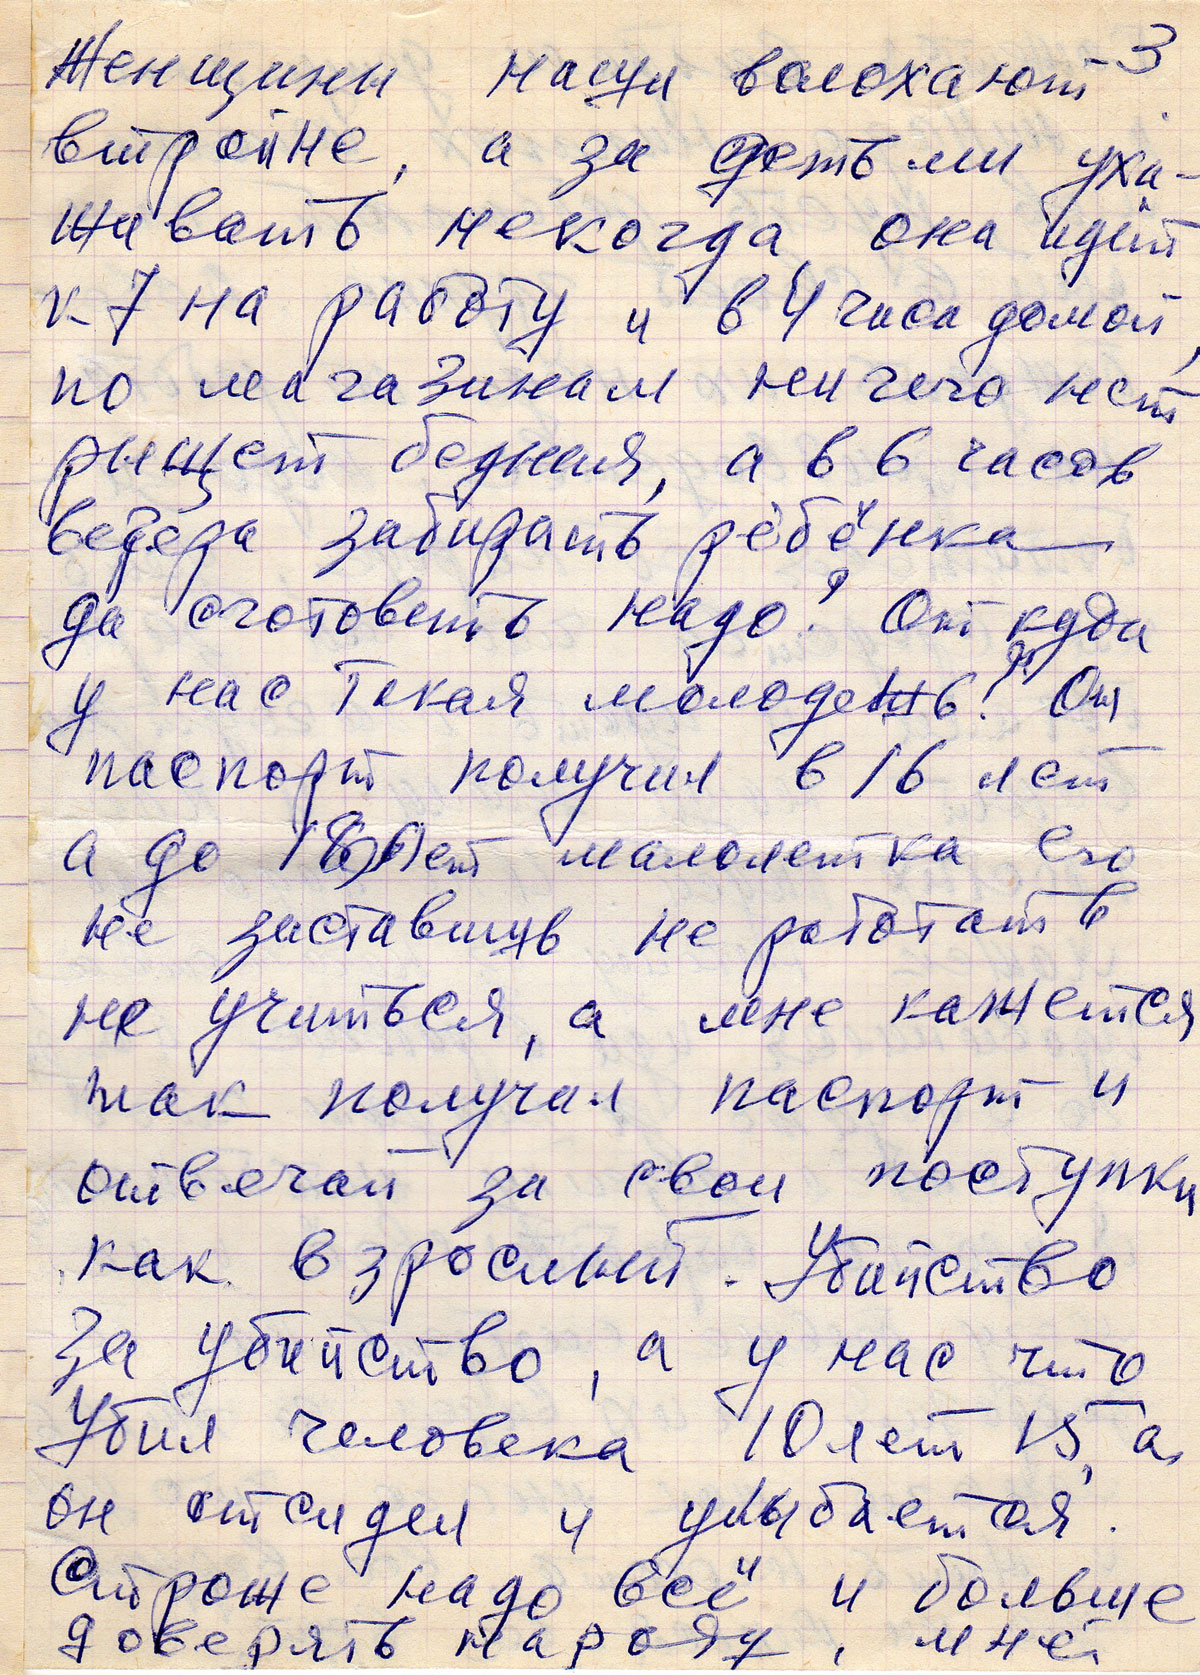 3
Женщины наши волохают
втройне, а за детьми уха-
живать некогда, она идёт
к 7 на работу и в 4 часа домой,
по магазинам ничего нет
рыщет бедная, а в 6 часов
вечера забирать ребёнка
да оготовить надо? Откуда
у нас такая молодежь? Он
паспорт получил в 16 лет
а до 18 лет малолетка его
не заставишь не работать
не учиться, а мне кажется
так получил паспорт и
отвечай за свои поступки
как взрослый. Убийство
за убийство, а у нас что
Убил человека 10 лет 15, а
он отсидел и улыбается.
Строже надо всё и больше
доверять народу, мне